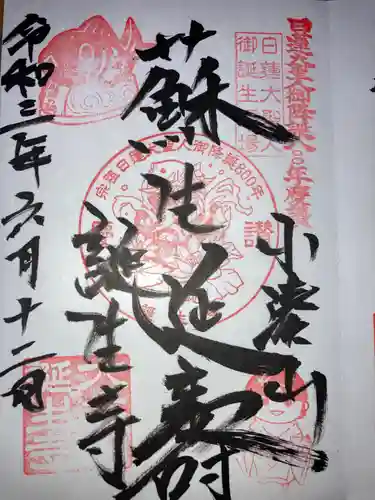 日蓮大聖人御降誕八〇〇年慶讃
日蓮大聖人
御誕生霊場
小湊山
蘇生延寿
宗祖日蓮大聖人御降誕800年
慶讃
誕生寺
令和三年六月十二日